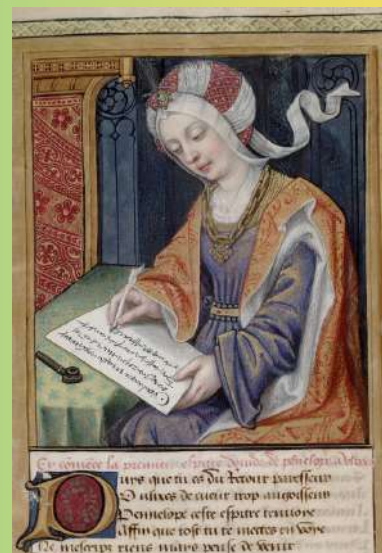 Cy cōmēce la premiere espitre douide de penelope a vlix
Puys que tu es du Retour paresseux
O ulixes de cueur trop angoisseux
Pennelope ceste espitre tenvoye
Affin que tost tu te mectes en voye
Ne mescript riens mays pense de venir